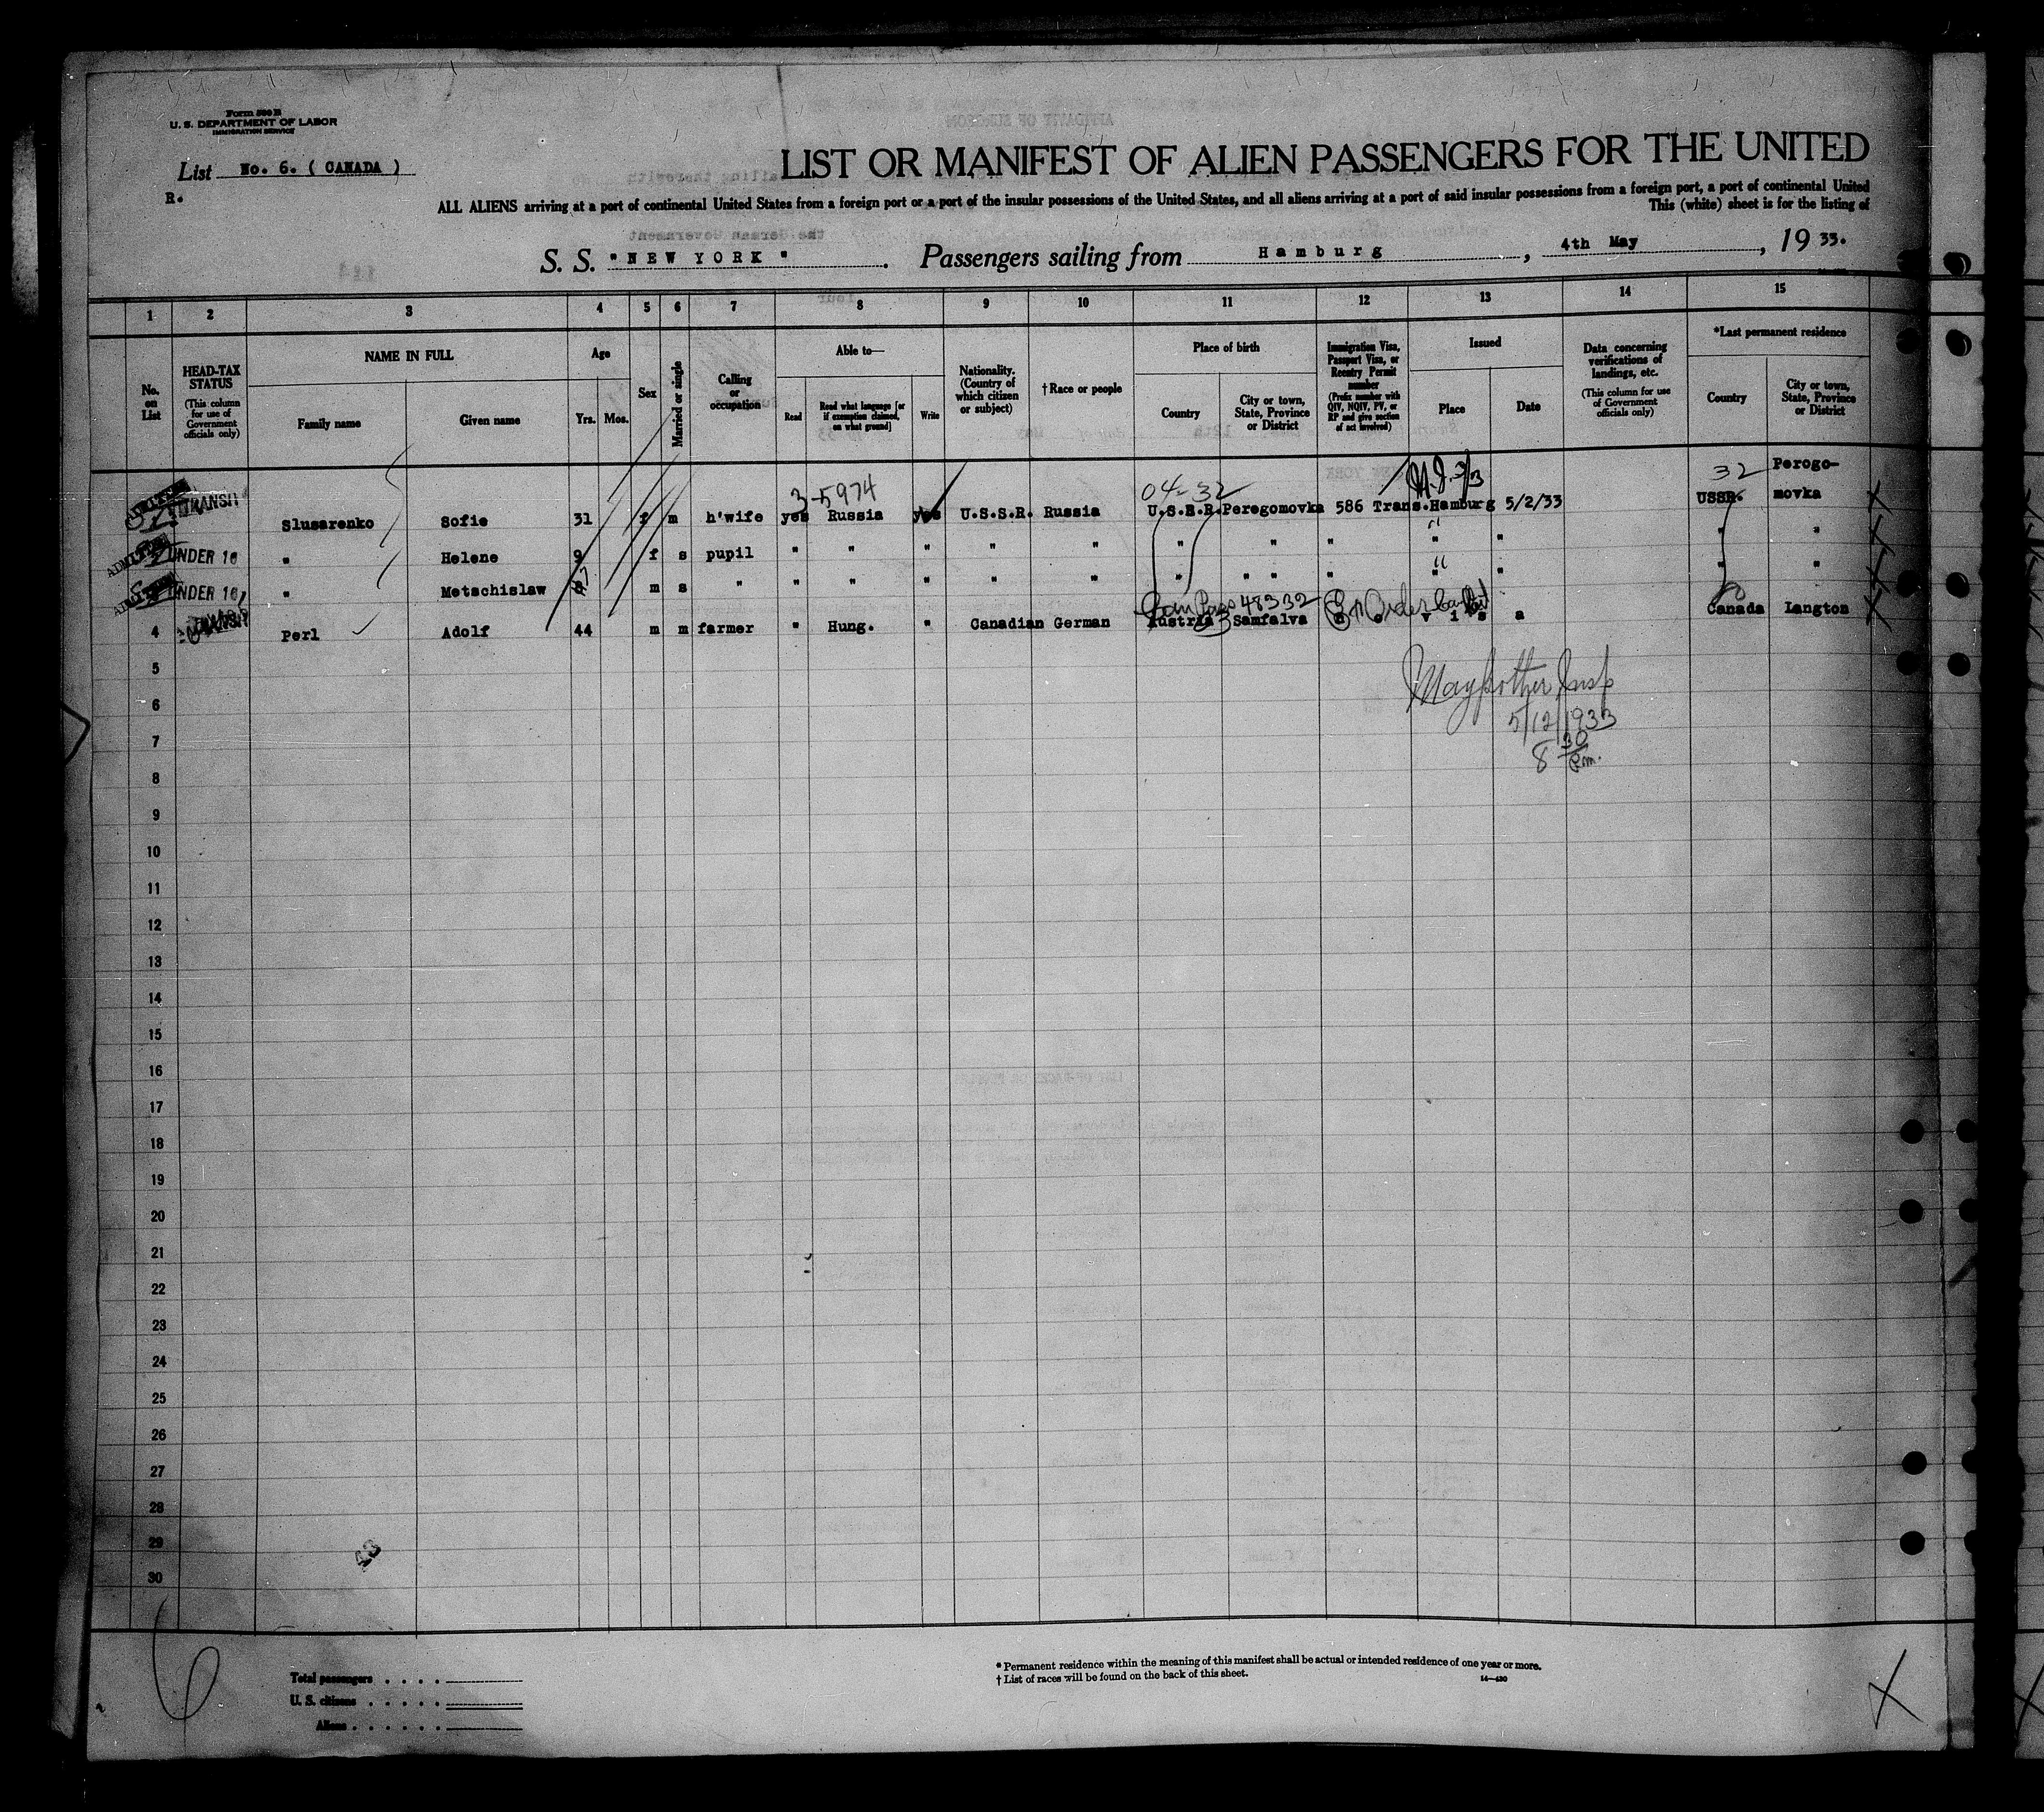 Form 500 B
U. S. DEPARTMENT OF LABOR
IMMIGRATION SERVICE
List No. 6. ( CANADA )
R.
LIST OR MANIFEST OF ALIEN PASSENGERS FOR THE UNITED
ALL ALIENS arriving at a port of continental United States from a foreign port or a port of the insular possessions of the United States, and all aliens arriving at a port of said insular possessions from a foreign port, a port of continental United
This (white) sheet is for the listing of
S. S. "NEW YORK". Passengers sailing from Hamburg, 4th May, 19 33.
1 2 3 4 5 6 7 8 9 10 11 12 13 14 15
No. on List
HEAD-TAX STATUS (This column for use of Government officials only)
NAME IN FULL
Family name Given name
Age
Yrs. Mos.
Sex
Married or single
Calling or occupation
Able to—
Read Read what language [or if exemption claimed, on what ground] Write
Nationality. (Country of which citizen or subject)
† Race or people
Place of birth
Country City or town, State, Province or District
Immigration Visa, Passport Visa, or Reentry Permit number (Prefix number with QIV, NQIV, PV, or RP and give section of act involved)
Issued
Place Date
Data concerning verifications of landings, etc. (This column for use of Government officials only)
*Last permanent residence
Country City or town, State, Province or District
3-5974 04-32 32 Perogo-
TRANSIT Slusarenko Sofie 31 f m h'wife yes Russia yes U.S.S.R. Russia U.S.S.R. Peregomovka 586 Trans. Hamburg 5/2/33 USSR. movka
ADMITTED UNDER 16 " Helene 9 f s pupil " " " " " " " " " " " "
UNDER 16 " Metschislaw 7 m s " " " " " " " " " " " " "
Can Pass 48332
4 TRANSIT Perl Adolf 44 m m farmer " Hung. " Canadian German Austria Samfalva n o v i s a Canada Langton
5
6
5/12/1933
7
8 30 Pm.
8
9
10
11
12
13
14
15
16
17
18
19
20
21
22
23
24
25
26
27
28
29
30
6
Total passengers . . . .
U. S. citizens . . . . .
Aliens . . . . . .
* Permanent residence within the meaning of this manifest shall be actual or intended residence of one year or more.
† List of races will be found on the back of this sheet.
14—430